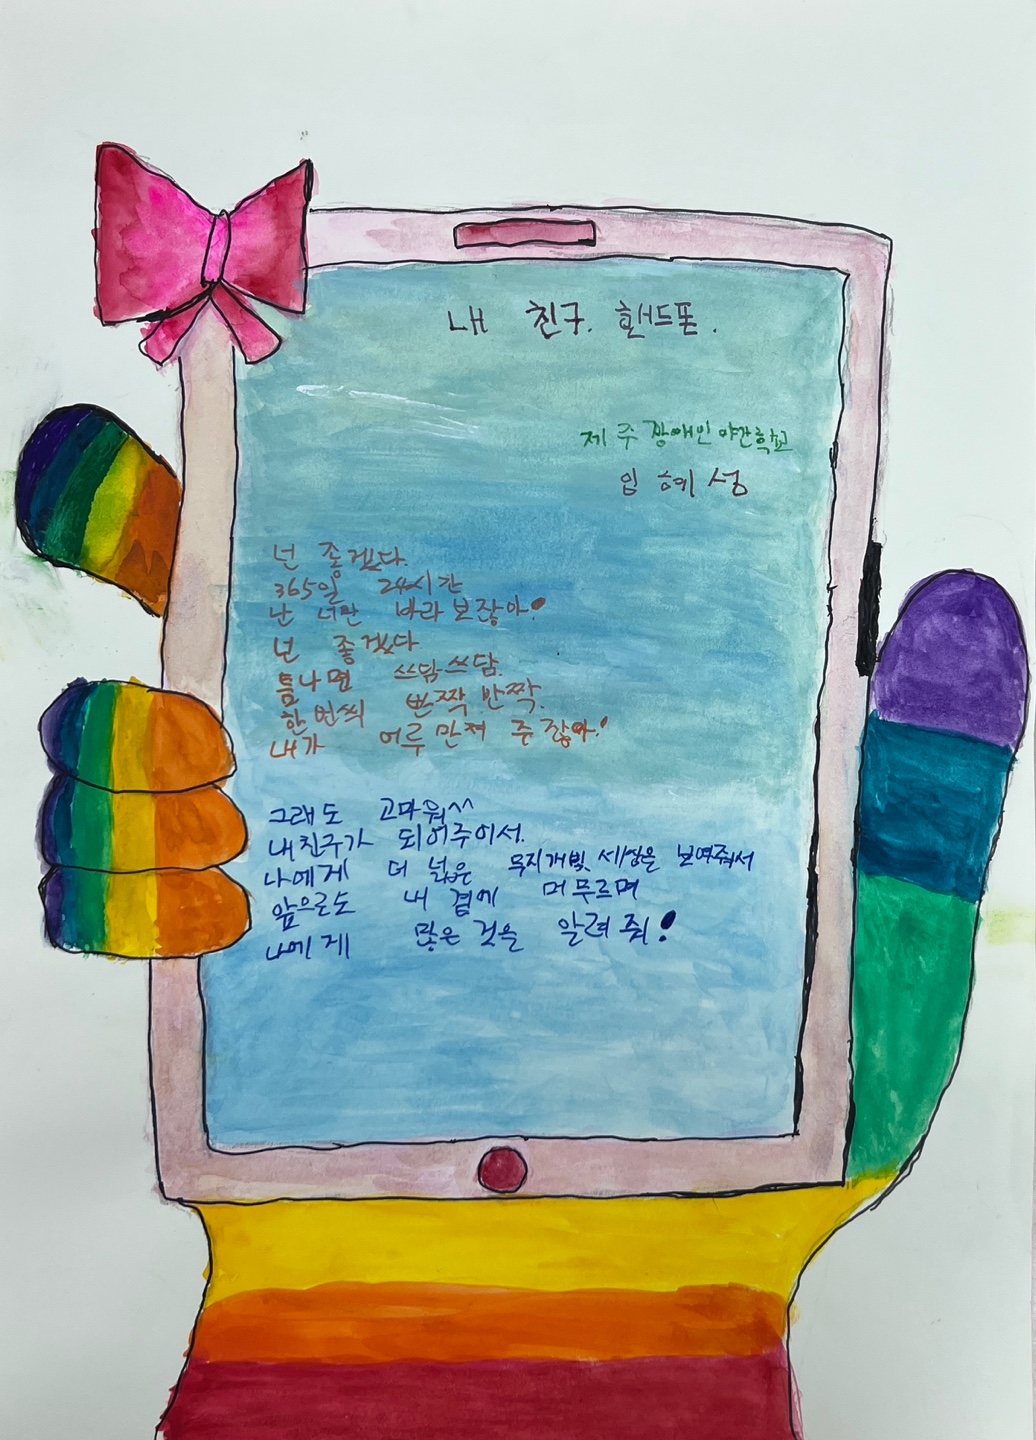 내 친구. 핸드폰.
제주장애인 야간학교
임혜성
넌 좋겠다.
365일 24시간
난 너만 바라보잖아!
넌 좋겠다
틈나면 쓰담쓰담.
한번씩 뻔짝 반짝.
내가 어루만져 주잖아!
그래도 고마워^^
내친구가 되어주어서.
나에게 더 넓은 무지개빛 세상을 보여줘서
앞으로도 내 곁에 머무르며
나에게 많은 것을 알려줘!